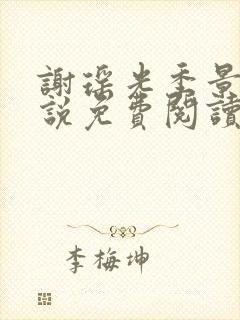 謝瑤光季景
說免費閱讀
李梅坤